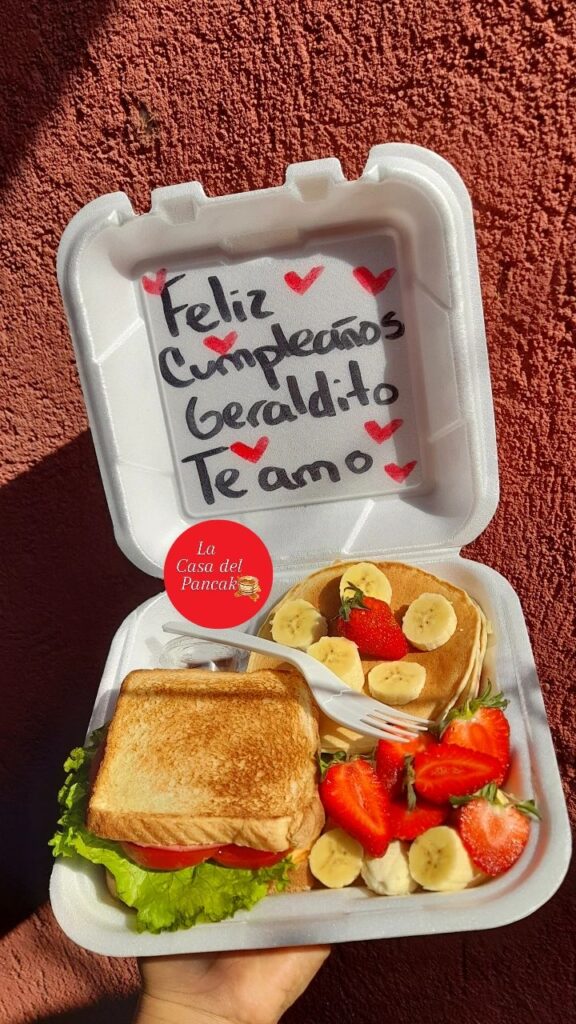 Feliz
Cumpleaños
Geraldito
Te amo
La
Casa del
Pancak